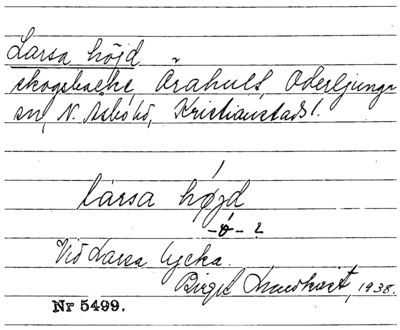 Larsa höjd
skogsbacke, Örahult, Oderljunga
sn, N. Åsbo hd, Kristianstads l.
lársa hǿjd
-ǿ- ?
Vid Larsa lycka.
Birgit Lundkvist, 1938.
Nr 5499.